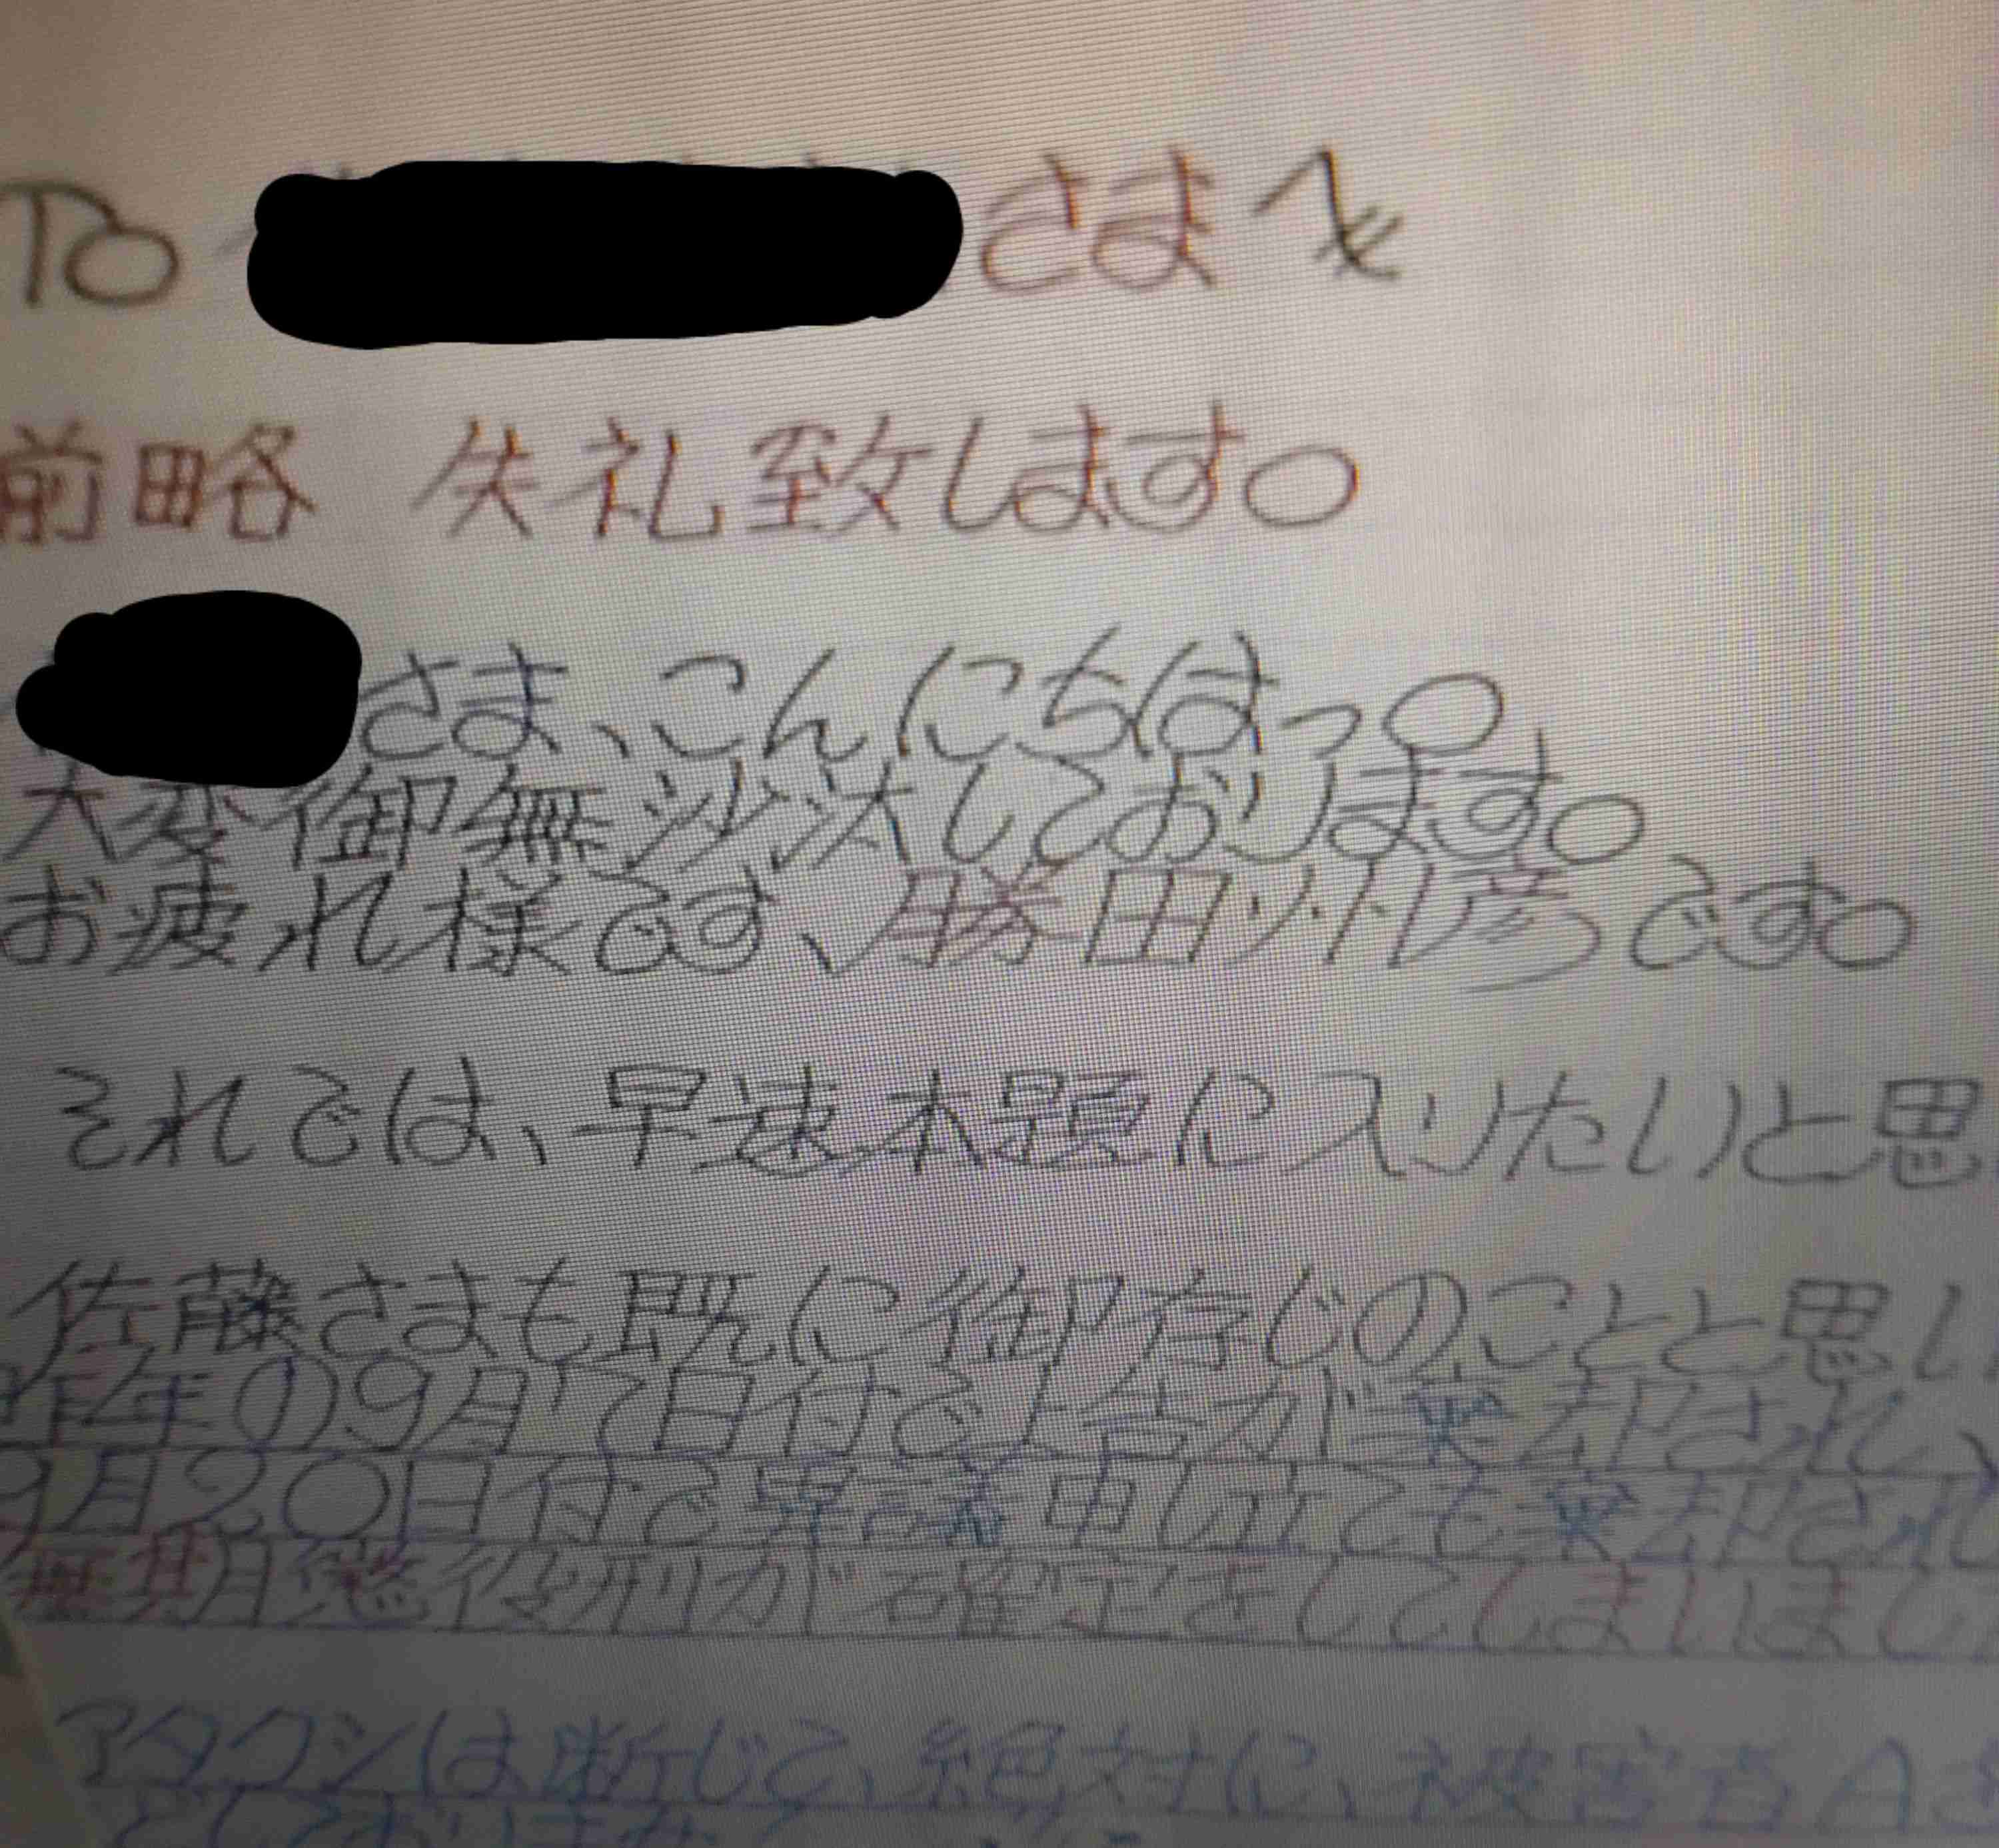 To さまへ
前略 失礼致します。
さま、こんにちはっ。
大変御無沙汰しております。
お疲れ様です、勝田州彦です。
それでは、早速本題に入りたいと思
佐藤さまも既に御存じのことと思い
昨年の9月7日付で上告が棄却され、
9月20日付で異議申し立ても棄却され
無期懲役刑が確定をしてしまいまし
アタクシは断じて、絶対に、被害者Aさ
しておりませ